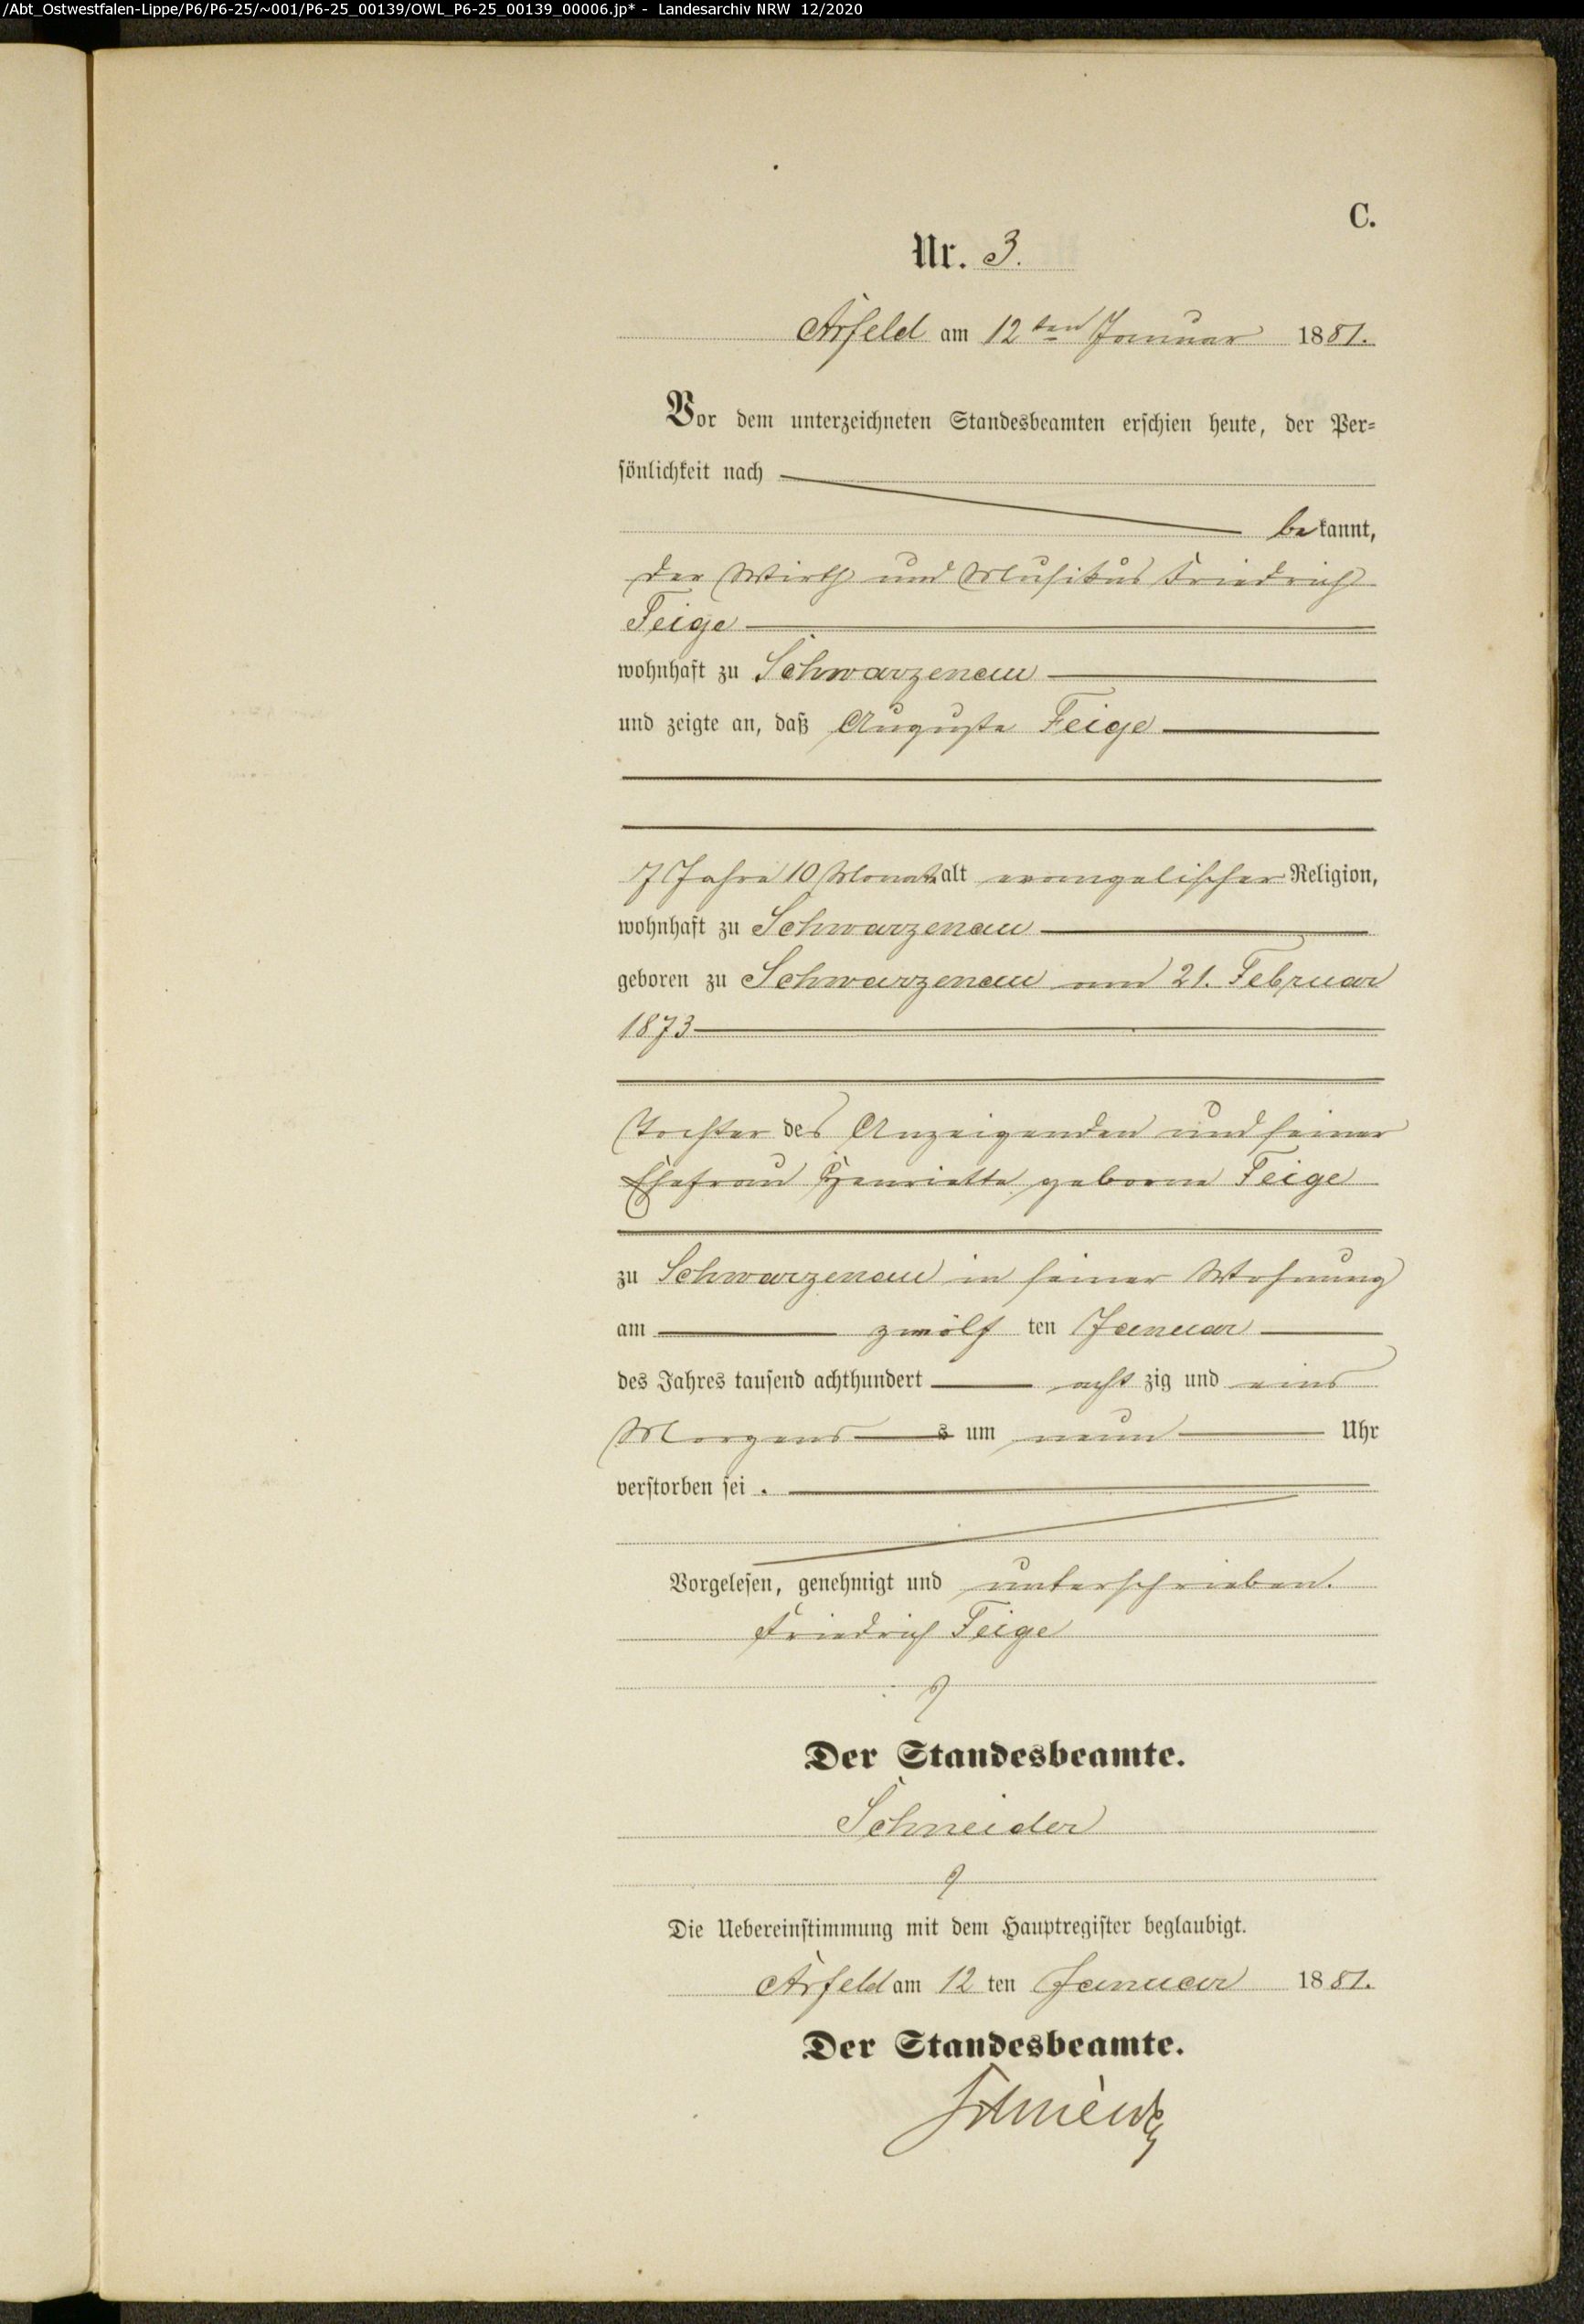 /Abt_Ostwestfalen-Lippe/P6/P6-25/~001/P6-25_00139/OWL_P6-25_00139_00006.jp* - Landesarchiv NRW 12/2020
C.
Nr. 3.
Arfeld am 12ten Januar 1881.
Vor dem unterzeichneten Standesbeamten erschien heute, der Per-
sönlichkeit nach
bekannt,
der Wirth und Musikus Friedrich
Feige
wohnhaft zu Schwarzenau
und zeigte an, daß Auguste Feige
7 Jahre 10 Monate alt evangelischer Religion,
wohnhaft zu Schwarzenau
geboren zu Schwarzenau am 21. Februar
1873
Tochter des Anzeigenden und seiner
Ehefrau Henriette geborne Feige
zu Schwarzenau in seiner Wohnung
am zwölf ten Januar
des Jahres tausend achthundert acht zig und eins
Morgens s um neun Uhr
verstorben sei .
Vorgelesen, genehmigt und unterschrieben.
Friedrich Feige
Der Standesbeamte.
Schneider
Die Uebereinstimmung mit dem Hauptregister beglaubigt.
Arfeld am 12 ten Januar 1881.
Der Standesbeamte.
Schneider